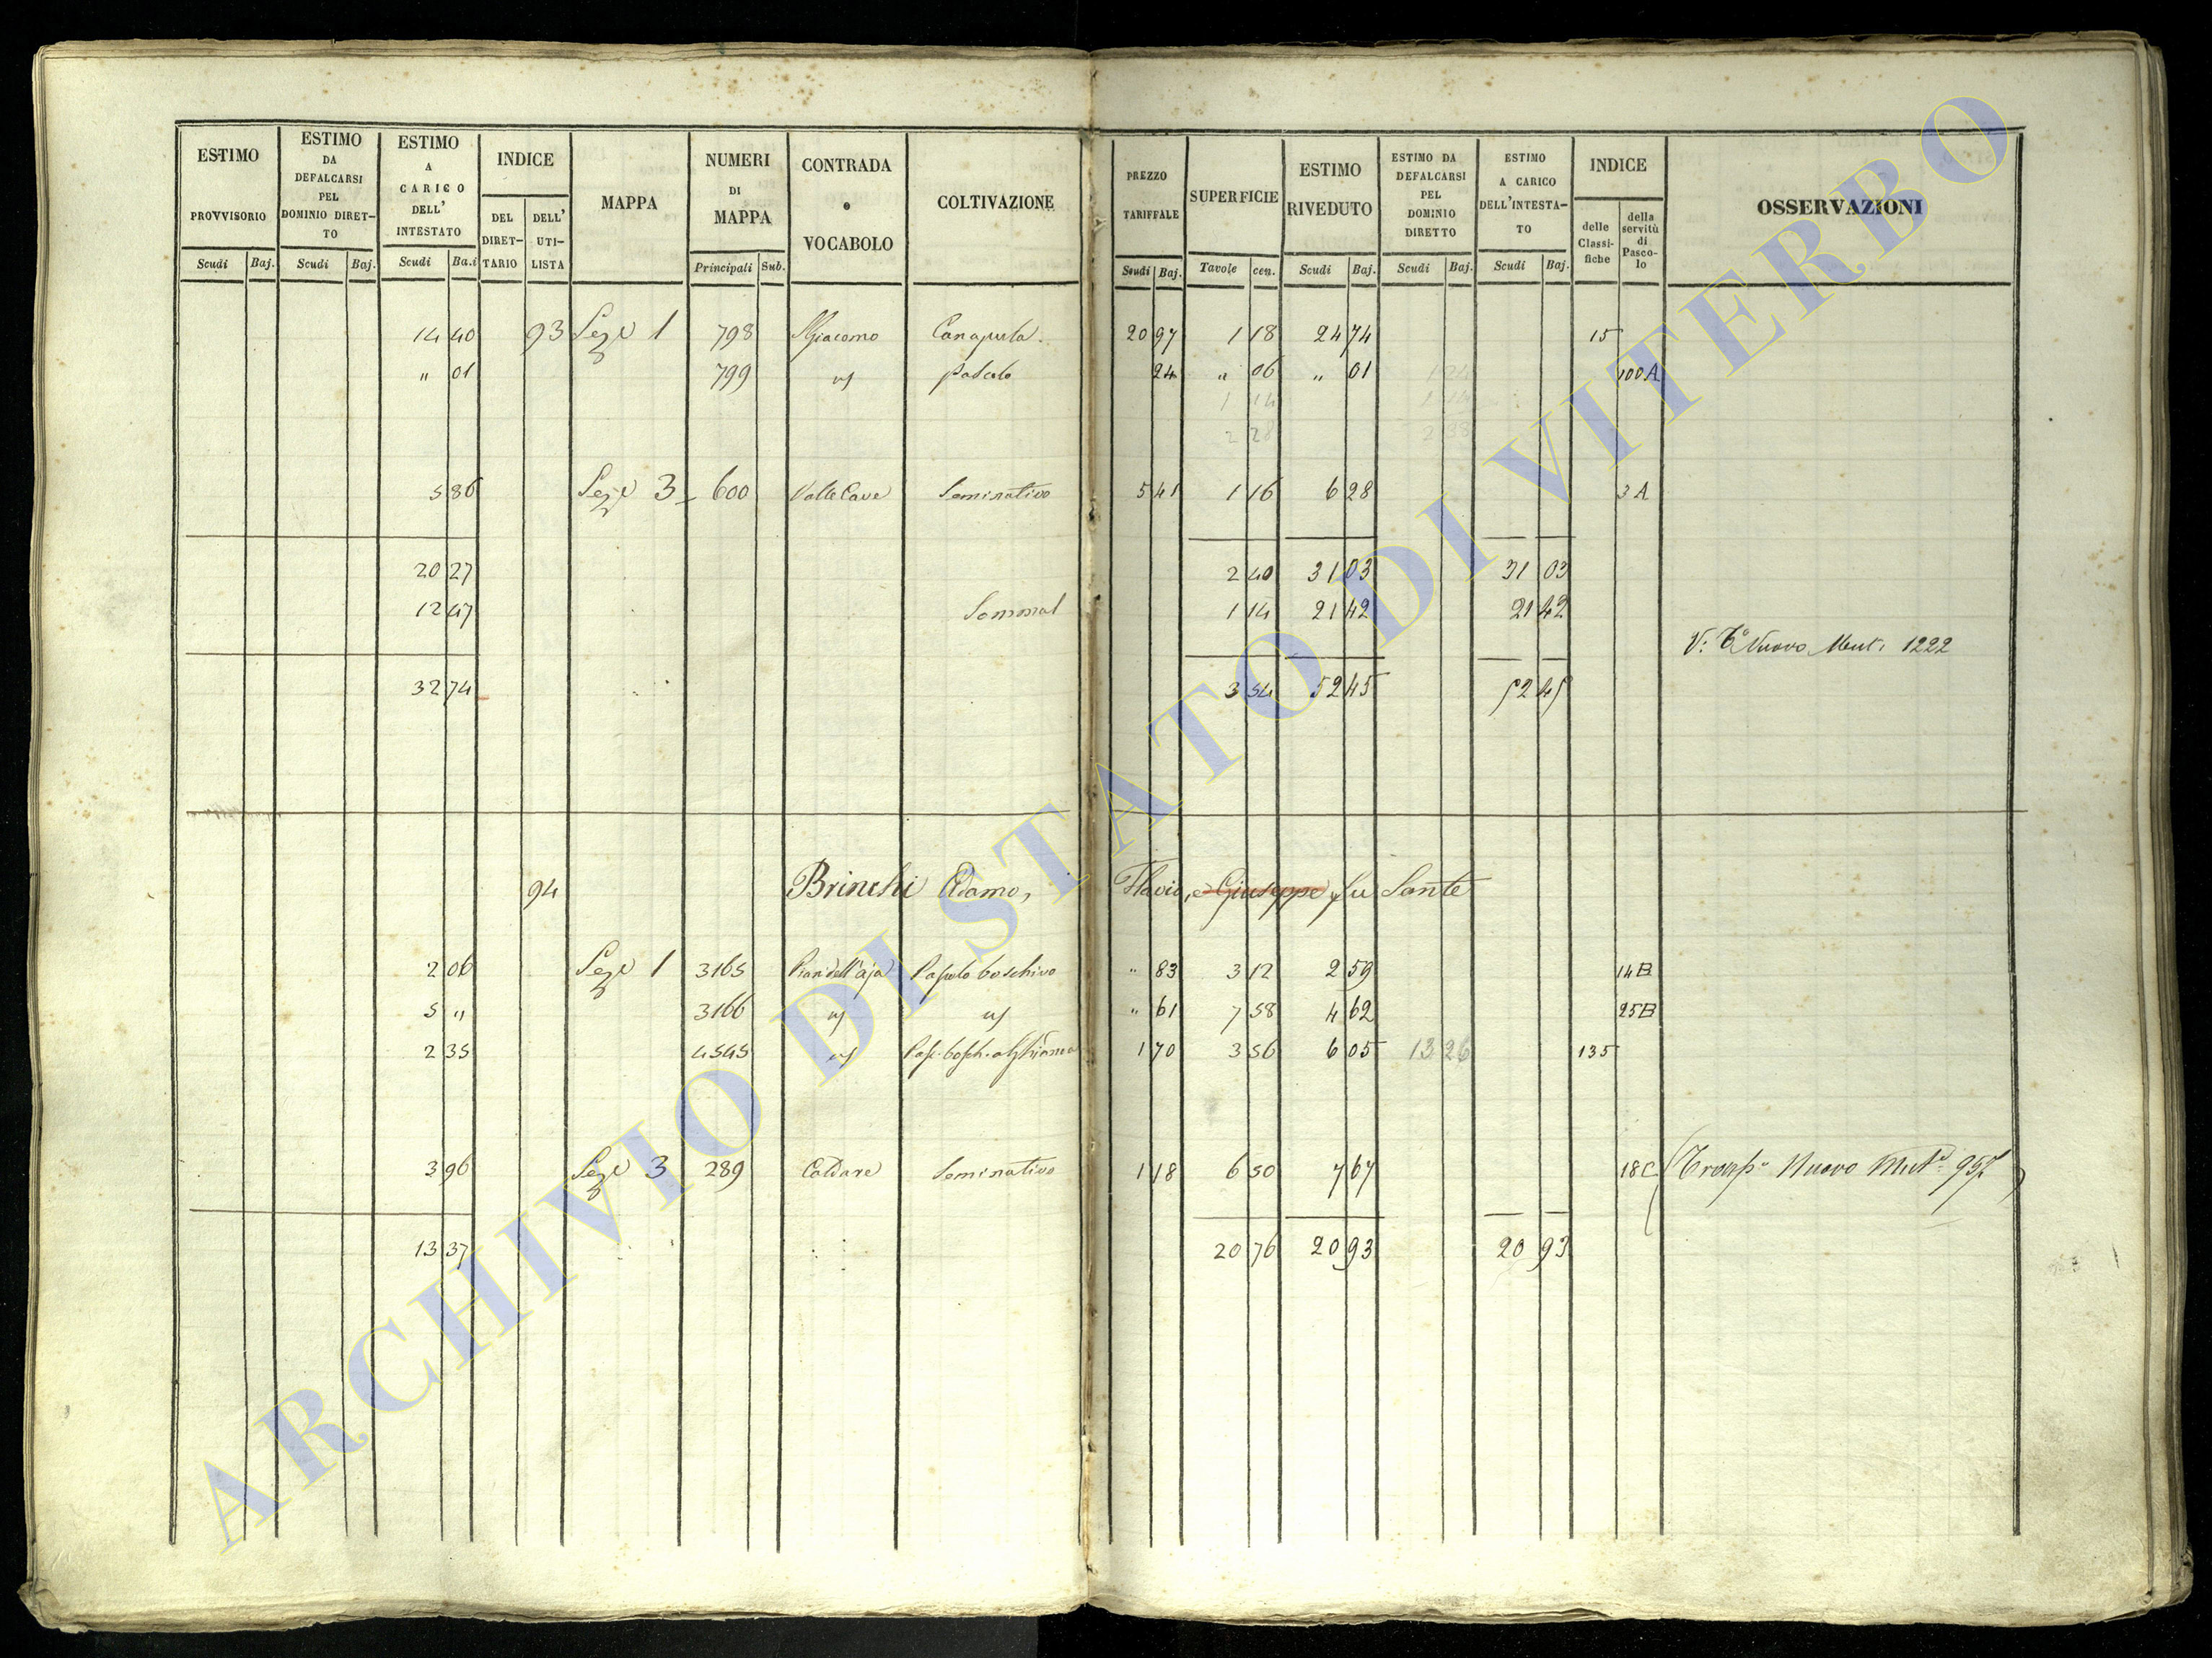 ESTIMO PROVVISORIO Scudi Baj.
ESTIMO DA DEFALCARSI PEL DOMINIO DIRET-TO Scudi Baj.
ESTIMO A CARICO DELL' INTESTATO Scudi Ba.i
INDICE DEL DIRET-TARIO DELL' UTI-LISTA
MAPPA
NUMERI DI MAPPA Principali Sub.
CONTRADA o VOCABOLO
COLTIVAZIONE
PREZZO TARIFFALE Scudi Baj.
SUPERFICIE Tavole cen.
ESTIMO RIVEDUTO Scudi Baj.
ESTIMO DA DEFALCARSI PEL DOMINIO DIRETTO Scudi Baj.
ESTIMO A CARICO DELL'INTESTA-TO Scudi Baj.
INDICE delle Classi-fiche della servitù di Pasco-lo
OSSERVAZIONI
14 40 93 Sez.e 1 798 S.Giacomo 20 97 1 18 24 74 15
" 01 799 id Pascolo 24 " 06 " 01 100 A
1 14
2 28
5 86 Sez.e 3 600 Valle Cave Seminativo 5 41 1 16 6 28 3 A
20 27 2 40 31 03 31 03
12 47 1 14 21 42 21 42
V: Nuovo Mut. 1222
32 74 3 54 52 45 52 45
94 Brinchi Adamo, Flavio, e Giuseppe fu Sante
2 06 Sez.e 1 3165 Pian dell'aja Pascolo boschivo " 83 3 12 2 59 14 B
5 " 3166 id id " 61 7 58 4 62 25 B
2 35 4545 id 1 70 3 56 6 05 13 26 135
3 96 Sez.e 3 289 Caldare Seminativo 1 18 6 50 7 67 18 C Nuovo 957
13 37 20 76 20 93 20 93
ARCHIVIO DI STATO DI VITERBO